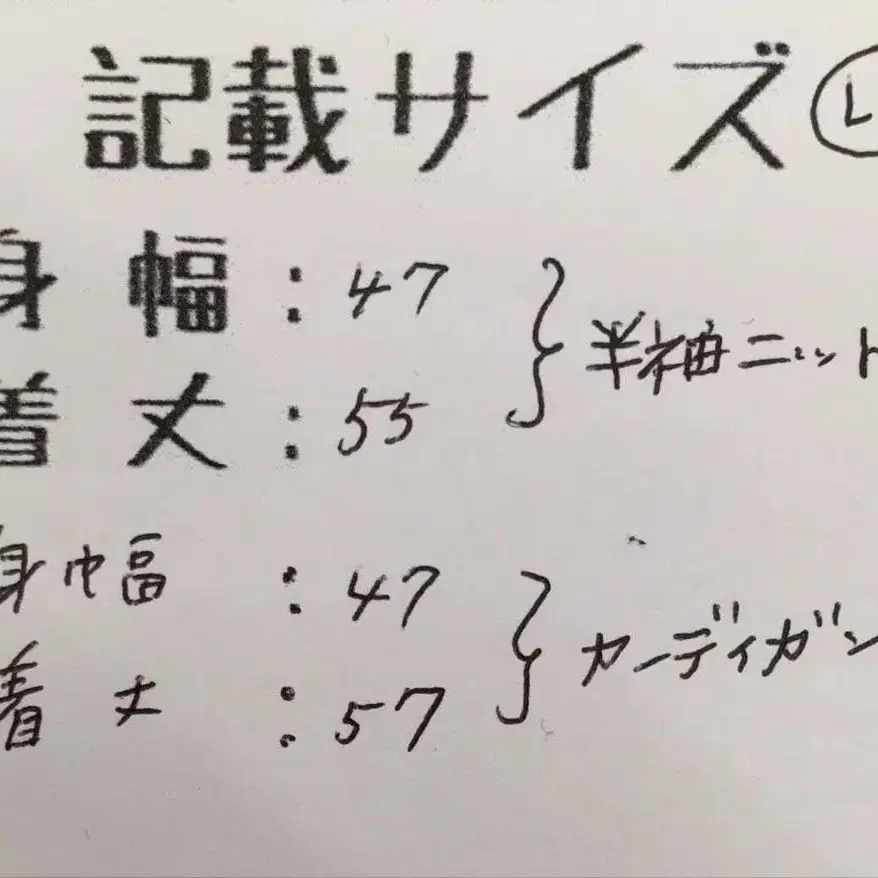 記載サイズ L
身幅:47
着丈:55
半袖ニット
身幅:47
着丈:57
カーディガン